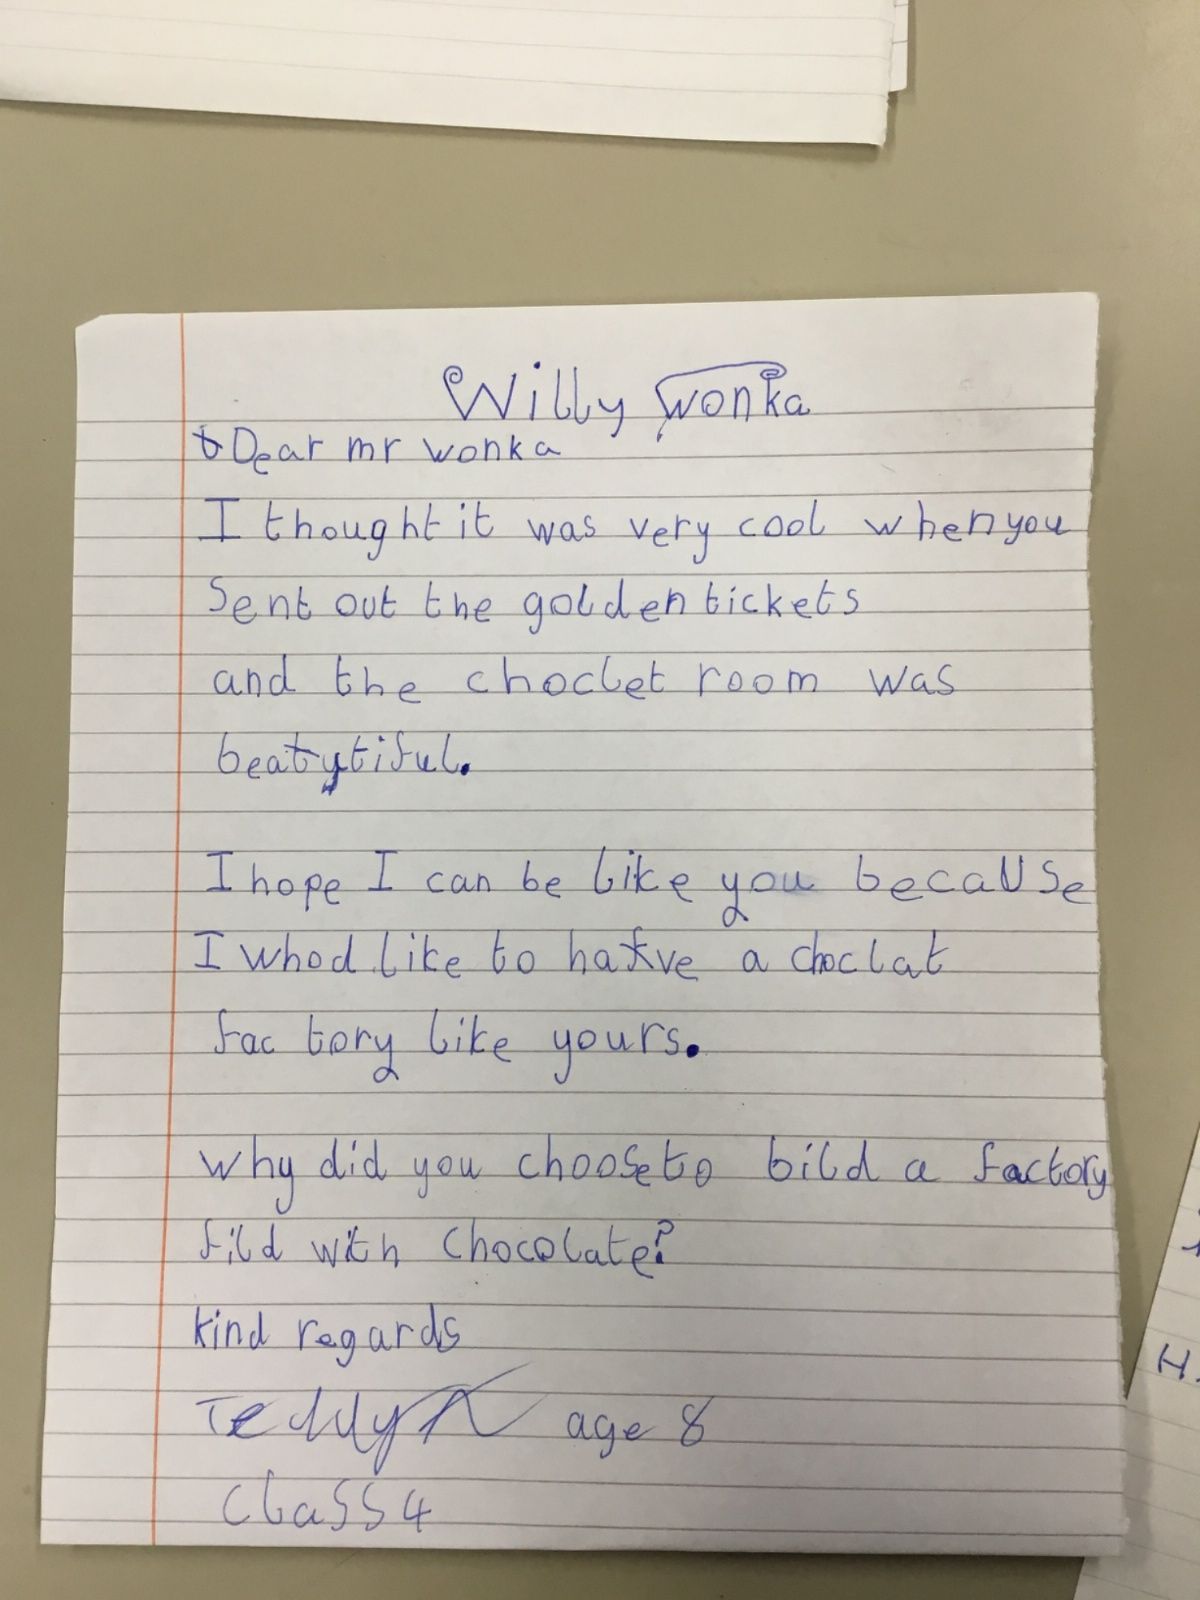 Willy Wonka
Dear mr wonka
I thought it was very cool when you
Sent out the golden tickets
and the choclet room was
beatytiful.
I hope I can be like you because
I whod like to have a choclat
factory like yours.
Why did you choose to bild a factory
fild with chocolate?
kind regards
Teddy age 8
Class 4
H.